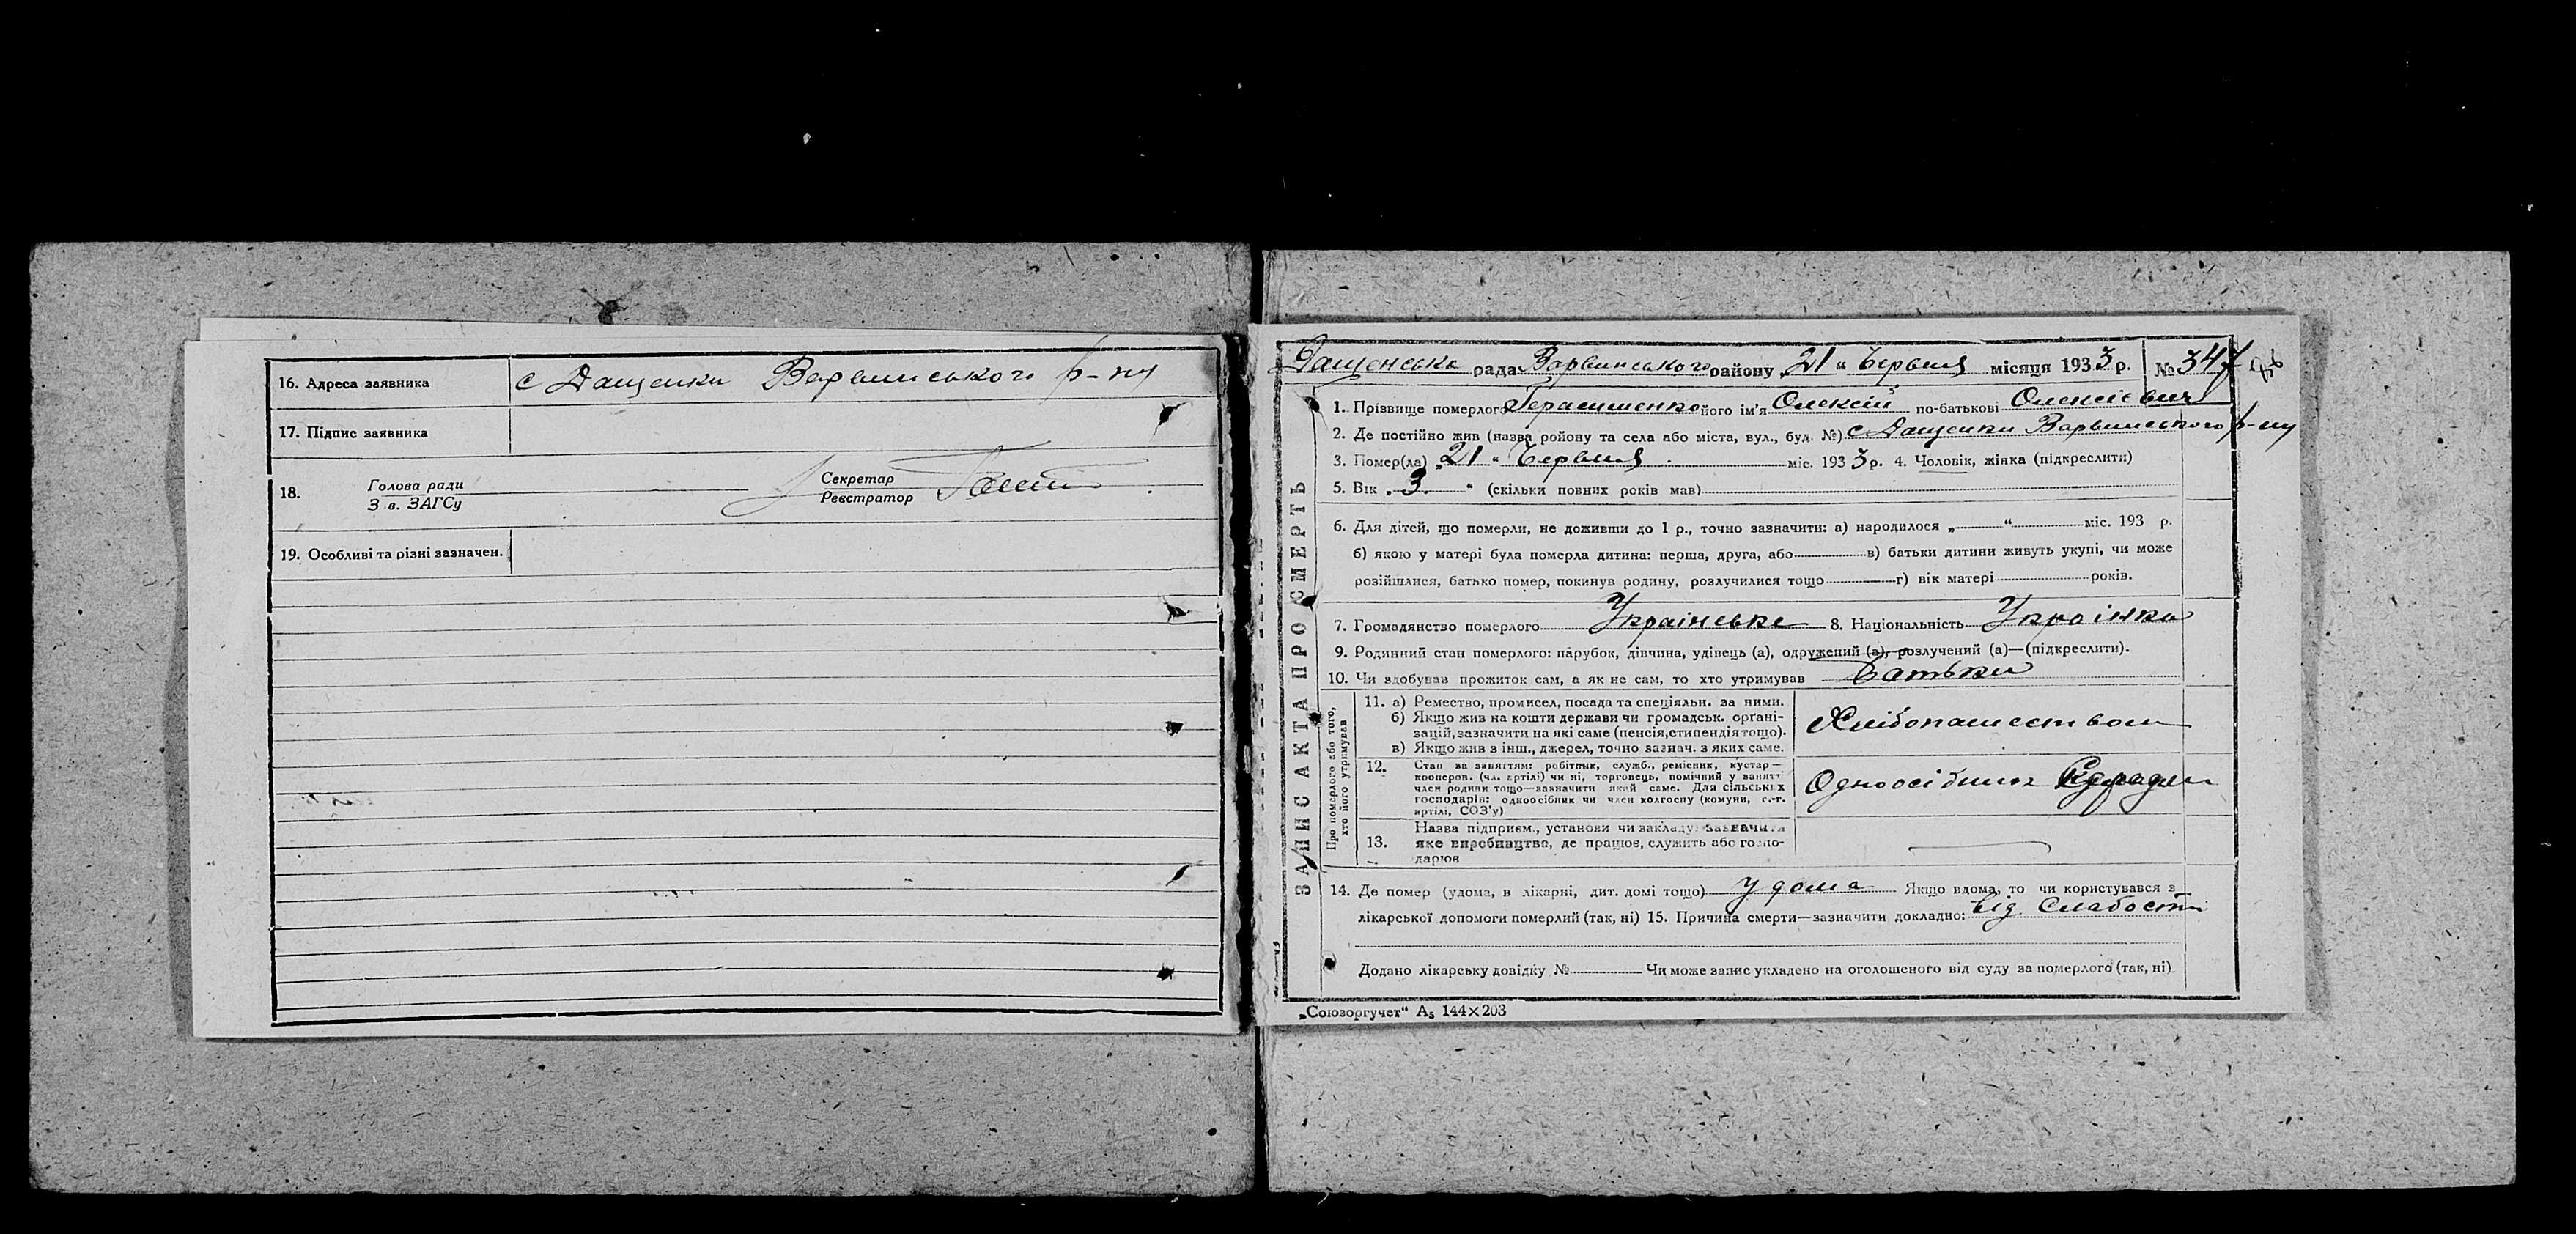 16. Адреса заявника с Дащенки Варвинського р-ну
17. Підпис заявника
18. Голова ради
З в. ЗАГСу
Секретар
Реєстратор
19. Особливі та різні зазначен.
ЗАПИС АКТА ПРО СМЕРТЬ
Дащенська рада Варвинського району „21“ Червня місяця 1933 р. № 347
1. Прізвище померлого Герасименко його ім'я Олексій по-батькові Олексієвич
2. Де постійно жив (назва ройону та села або міста, вул., буд. №) с Дащенки Варвинського р-ну
3. Помер(ла) „21“ Червня міс. 1933 р. 4. Чоловік, жінка (підкреслити)
5. Вік „3“ (скільки повних років мав)
6. Для дітей, що померли, не доживши до 1 р., точно зазначити: а) народилося „ “ міс. 193 р.
б) якою у матері була померла дитина: перша, друга, або в) батьки дитини живуть укупі, чи може
розійшлися, батько помер, покинув родину, розлучилися тощо г) вік матері років.
7. Громадянство померлого Українське 8. Національність Українка
9. Родинний стан померлого: парубок, дівчина, удівець (а), одружений (а), розлучений (а)—(підкреслити).
10. Чи здобував прожиток сам, а як не сам, то хто утримував Батьки
Про померлого або того, хто його утримував
11. а) Ремество, промисел, посада та спеціяльн. за ними.
б) Якщо жив на кошти держави чи громадськ. орґані-
зацій, зазначити на які саме (пенсія, стипендія тощо).
в) Якщо жив з інш., джерел, точно зазнач. з яких саме.
Хлібопашеством
12. Стан за заняттям: робітник, служб., ремісник, кустар—
кооперов. (чл. артілі) чи ні, торговець, помічний у занятт
член родини тощо—зазначити який саме. Для сільських
господарів: одноосібник чи член колгоспу (комуни, с.-г.
артілі, СОЗ'у)
Одноосібник
13. Назва підприєм., установи чи закладу: зазначити
яке виробництво, де працює, служить або госпо-
дарює
14. Де помер (удома, в лікарні, дит. домі тощо) удома Якщо вдома, то чи користувався з
лікарської допомоги померлий (так, ні) 15. Причина смерти—зазначити докладно: від Слабости
Додано лікарську довідку № Чи може запис укладено на оголошеного від суду за померлого (так, ні)
„Союзоргучет“ А5 144×203